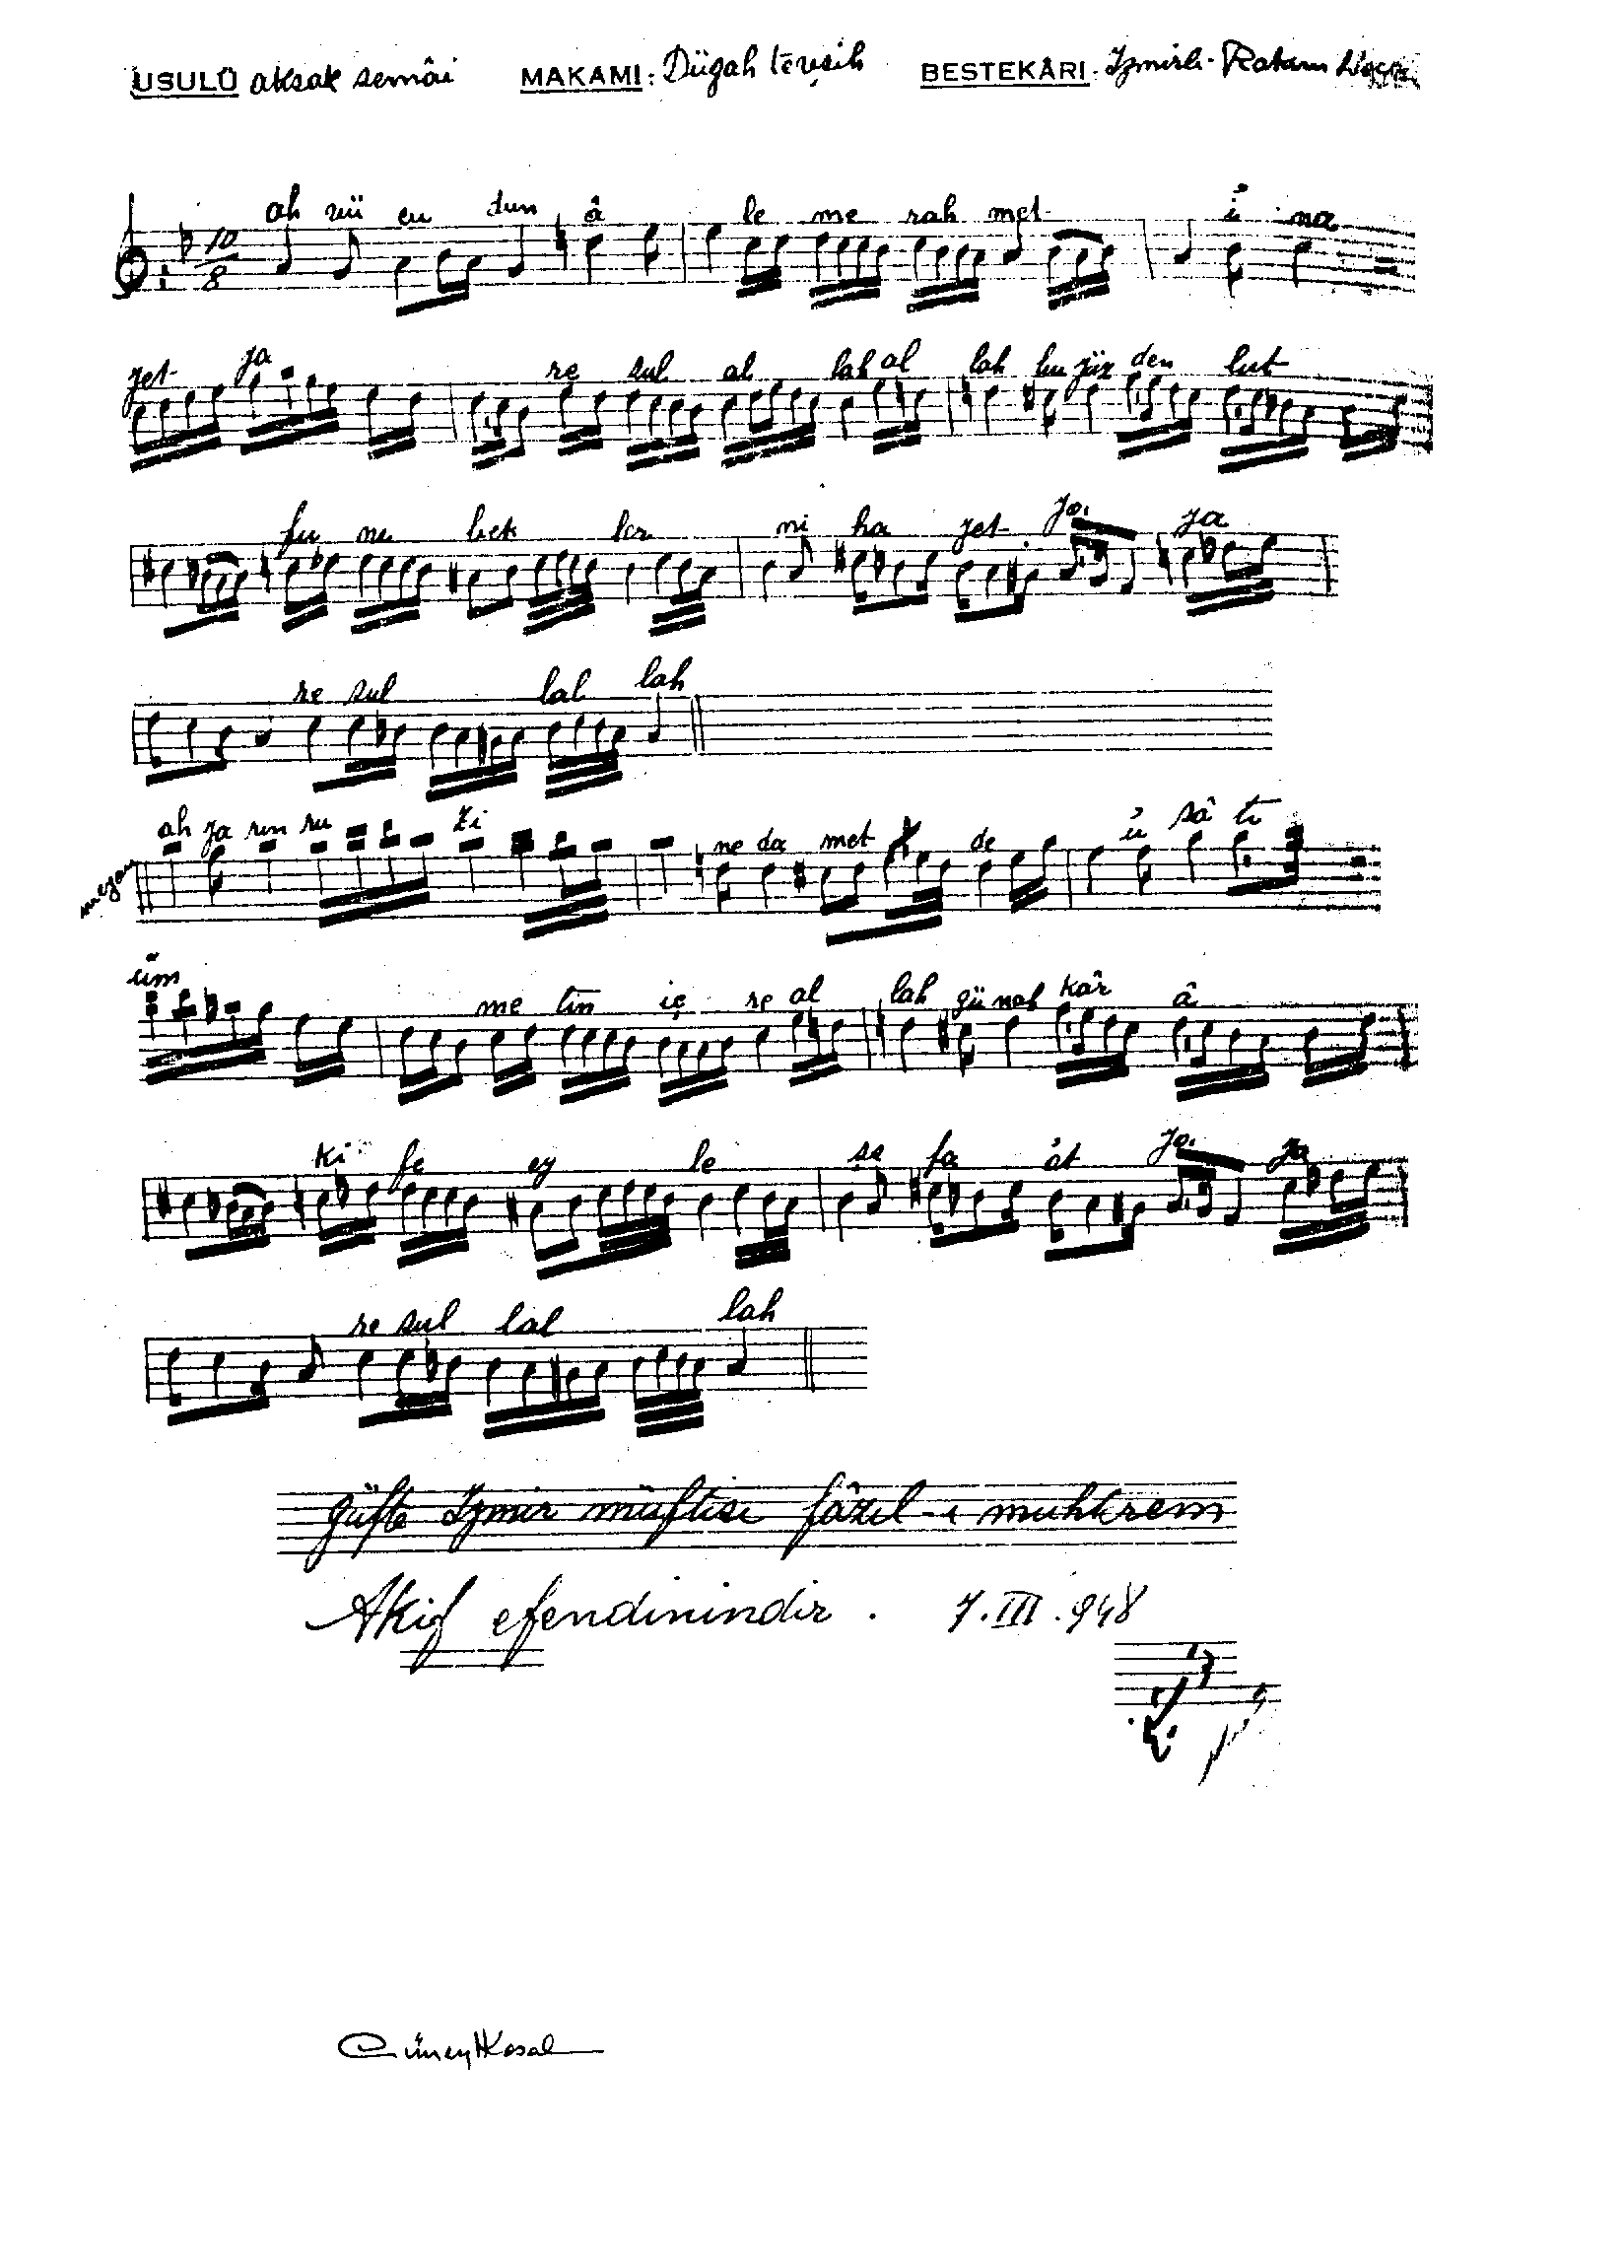 USULÜ aksak semâi MAKAMI: Dügah tevşih BESTEKÂRI: İzmirli Rakım
ah vü cu dun â le me rah met i na
10/8
yet ya re sul al lah al lah hu zür den lut
fu nu bek ler ni ha yet ya
re sul lal lah
ah ya rın ru zi ne da met de ü sâ tı
meyan
üm me tin iç re al lah gü nah kâr â
ki fe ey le şe fa ât ya
re sul lal lah
güfte Izmir müftisi fâzıl-ı muhtrem
Akif efendinindir. 7.III.948
Cüneyt Kosal